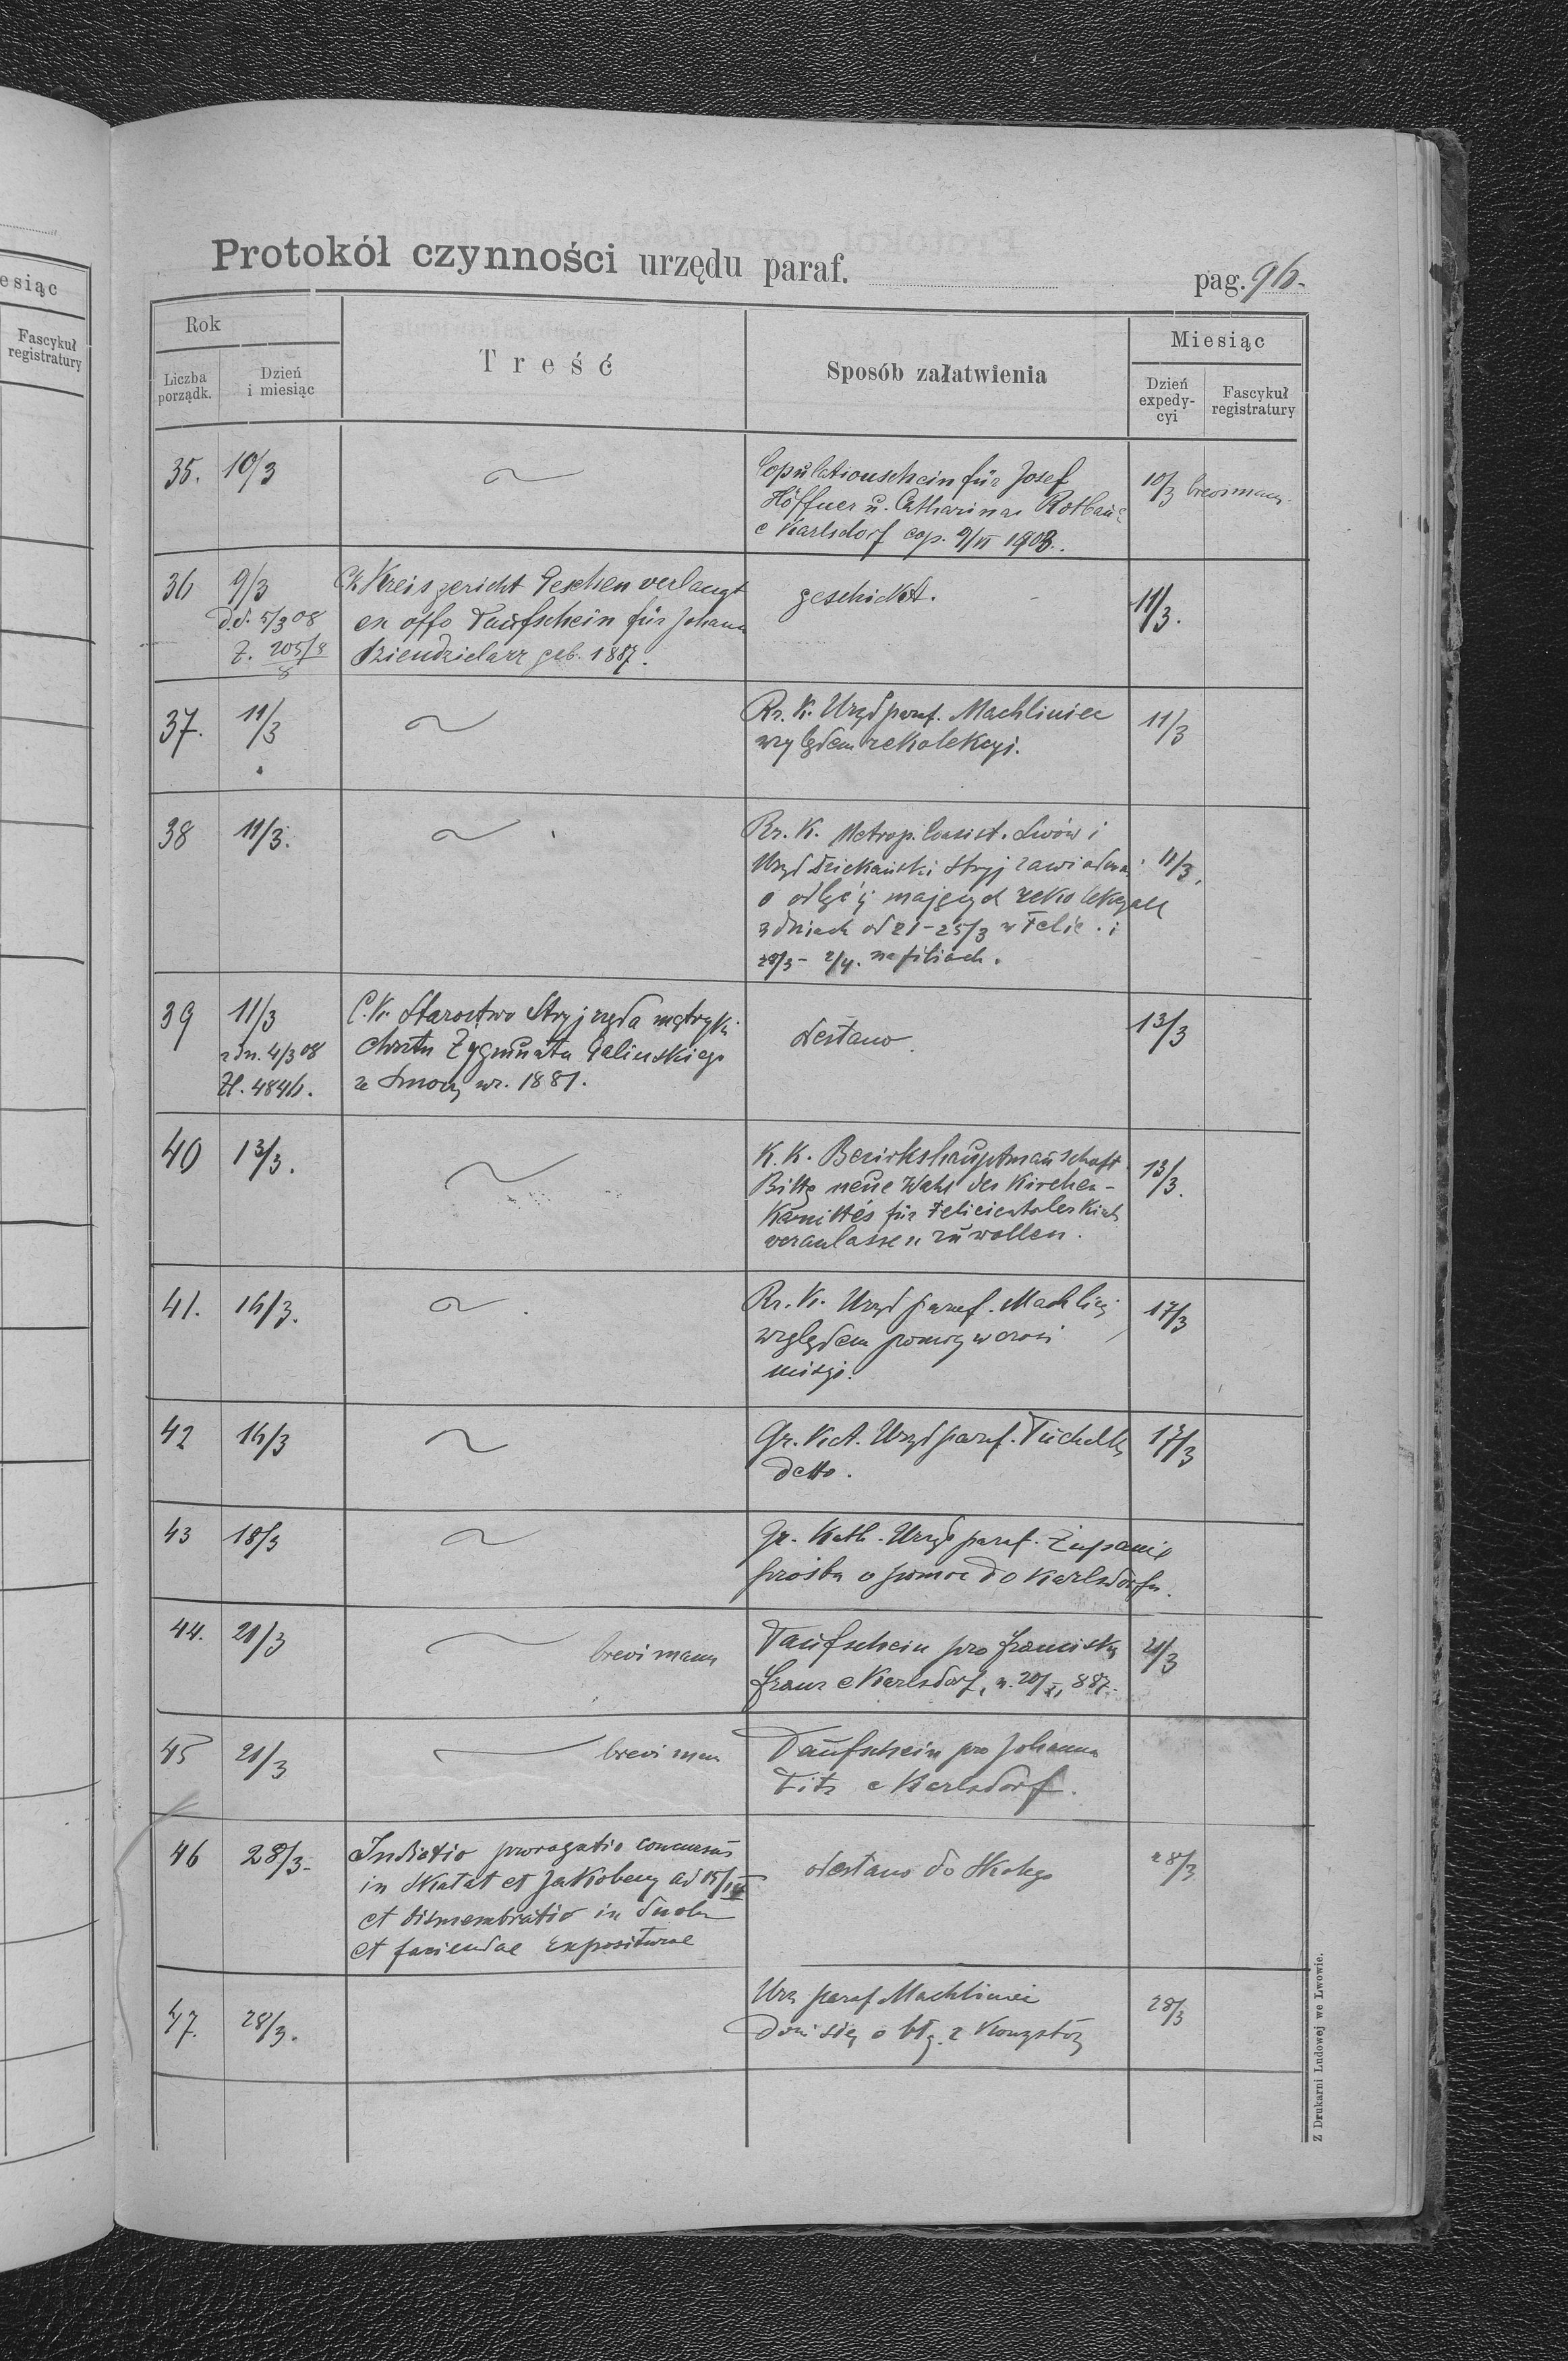 esiąc
Fascykuł
registratury
Protokół czynności urzędu paraf.
pag. 96.
Rok
Liczba
porządk.
Dzień
i miesiąc
Treść
Sposób załatwienia
Miesiąc
Dzień
expedy-
cyi
Fascykuł
registratury
35. 10/3
Copulationschein für Josef
Höffner u. Catharina
e Karlsdorf cop. 9/VI 1903.
10/3 brevi manu.
36 9/3
d.d. 5/3 08
Z. 205/8
8
Kreisgericht verlangt
ex offo Taufschein für Johann
geb. 1887.
geschickt.
11/3.
37. 11/3
Rz. K. Urząd paraf. Machliniec
względem rekolekcyi.
11/3
38 11/3.
Rz. K. Metrop. Consist. Lwów i
Urząd Dziekański Stryj
o odbyć się mających
3 dniach od 21-25/3 w Felic. i
28/3 - 2/4. na filiach.
11/3.
39 11/3
z dn. 4/3 08
Zl. 4846.
C. K. Starostwo Stryj żąda metryki
chrztu Zygmunta Galinskiego
ur. 1881.
desłano.
13/3
40 13/3.
K. K. Bezirkshauptmanschaft
Bitte neue Wahl des Kirchen-
Komittés für
veranlassen zu wollen.
13/3.
41. 16/3.
Rz. K. Urząd paraf.
względem pomocy w czasie
misyi.
17/3
42 16/3
Gr. Kat. Urząd paraf. Tucholka
detto.
17/3
43 18/3
Gr. Kath. Urząd paraf. Żupanie
prośba o pomoc do Karlsdorfu.
44. 21/3
brevi manu
Taufschein pro
Franz e Karlsdorf, n. 20/XI 887.
21/3
45 21/3
brevi manu
Taufschein pro Johanna
e Karlsdorf.
46 28/3.
Indictio prorogatio concursus
in Skałat et Jakobeny ad 15/IV
et dismembratio in
et faciendae Expositurae
desłano do Skolego
28/3
47. 28/3.
Urz paraf Machliniec
28/3
Z Drukarni Ludowej we Lwowie.